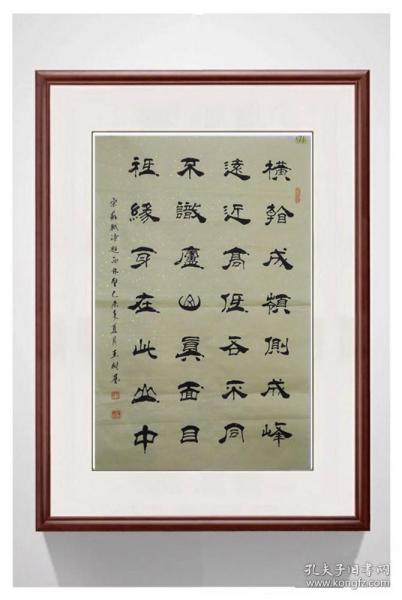 橫看成嶺側成峰
遠近高低各不同
不識廬山眞面目
祗緣身在此山中
宋蘇軾詩題西林壁 夏月 王樹
孔夫子旧书网
www.kongfz.com